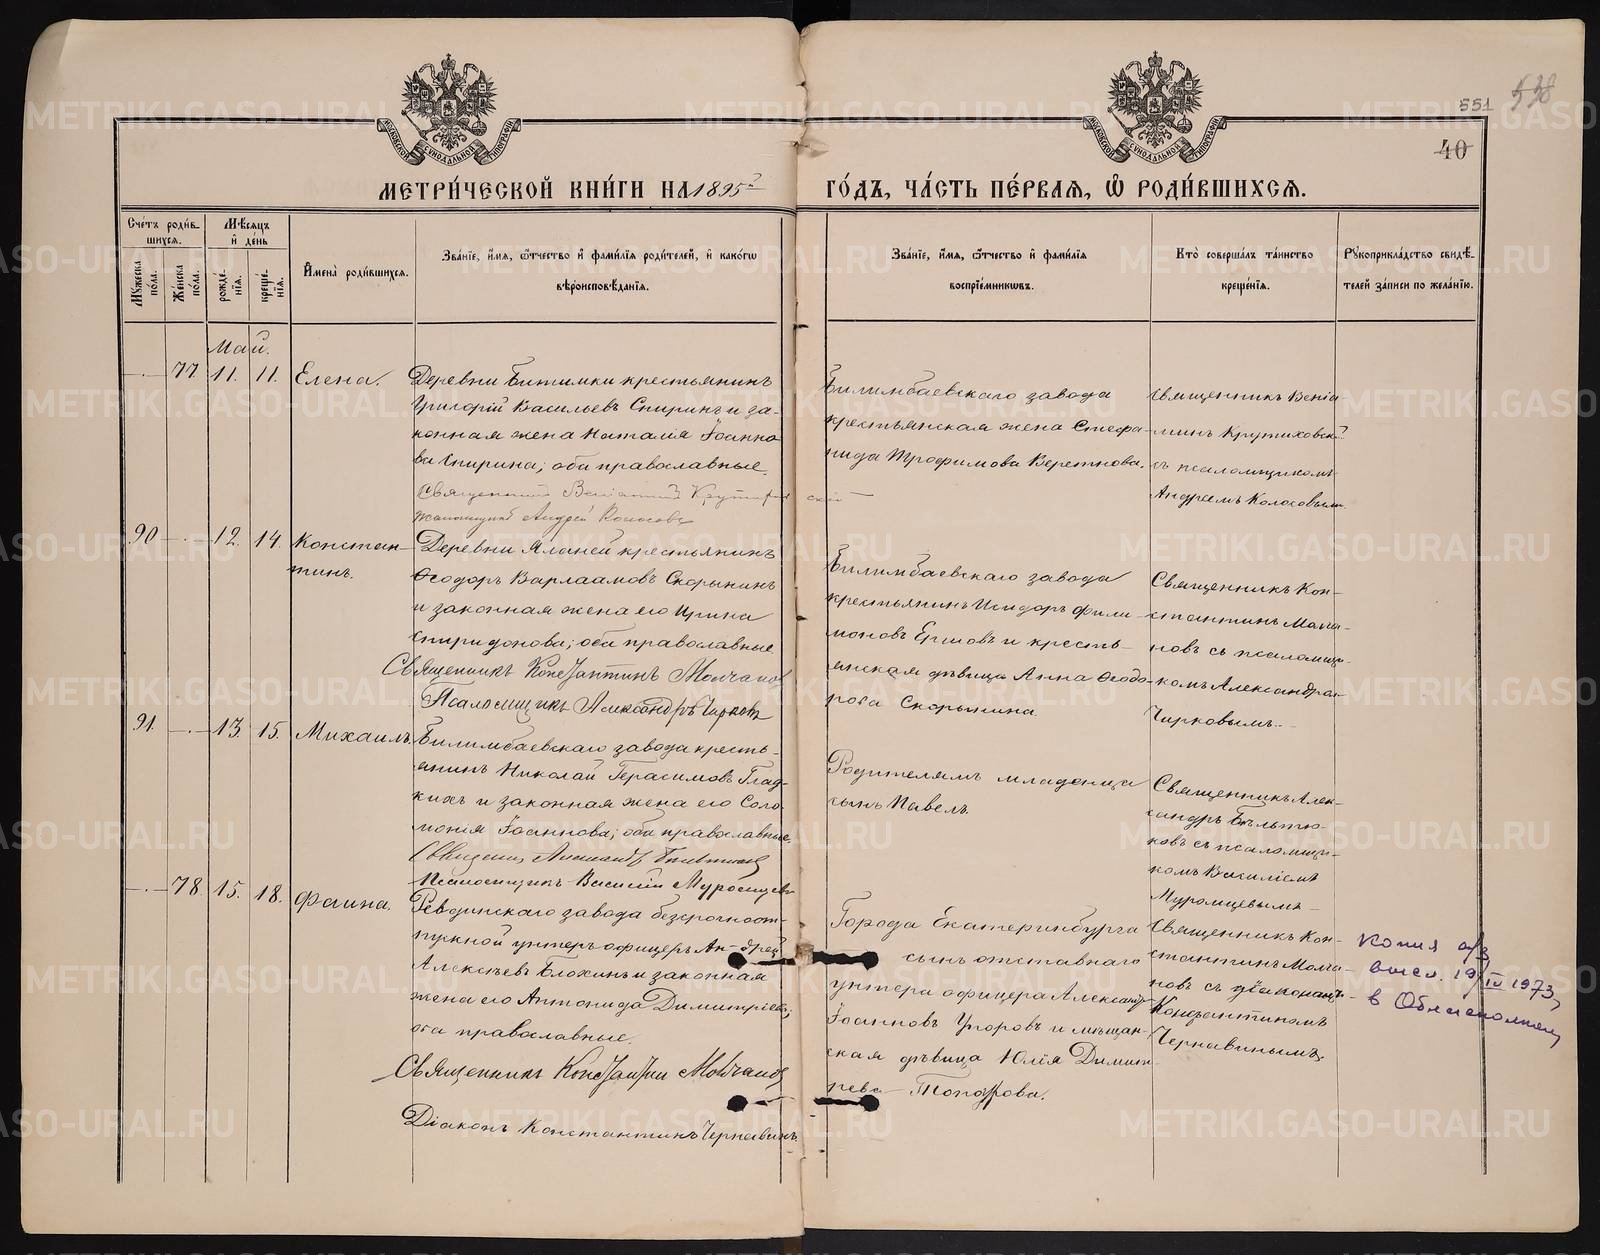 551 538
40
МОСКОВСКОЙ СѴНОДАЛЬНОЙ ТИПОГРАФІИ
МОСКОВСКОЙ СѴНОДАЛЬНОЙ ТИПОГРАФІИ
МЕТРИ́ЧЕСКОЙ КНИ́ГИ НА 1895й ГО́ДЪ, ЧА́СТЬ ПЕ́РВАѦ, Ѡ҆ РОДИ́ВШИХСѦ.
Сче́тъ роди́вшихсѧ.
Мꙋ́жеска по́ла.
Же́нска по́ла.
Мѣ́сѧцъ и҆ де́нь
рожде́нїѧ.
креще́нїѧ.
И҆мена̀ роди́вшихсѧ.
Зва́нїе, и҆́мѧ, ѻ҆́тчество и҆ фами́лїѧ роди́телей, и҆ како́гѡ
вѣроисповѣ́данїѧ.
Зва́нїе, и҆́мѧ, ѻ҆́тчество и҆ фами́лїѧ
воспрїе́мникѡвъ.
Кто̀ соверша́лъ та́инство
креще́нїѧ.
Рꙋкоприкла́дство свидѣ́-
телей за́писи по жела́нїю.
Май.
77. 11. 11. Елена.
Деревни Битимки крестьянинъ
Григорій Васильевъ Спиринъ и за-
конная жена Наталія Іоанно-
ва Спирина; оба православные.
Священникъ Веніаминъ Крутиховскій
Псаломщикъ Андрей Колосовъ
Билимбаевскаго завода
крестьянская жена Стефа-
нида Трофимова Веретнова.
Священникъ Веніа-
минъ Крутиховскій
съ псаломщикомъ
Андреемъ Колосовымъ.
90 12. 14. Констан-
тинъ.
Деревни Яланей крестьянинъ
Ѳеодоръ Варлаамовъ Скорынинъ
и законная жена его Ирина
Спиридонова; оба православные
Священникъ Константинъ Молчановъ
Псаломщикъ Александръ Чирковъ
Билимбаевскаго завода
крестьянинъ Исидоръ Фили-
моновъ Ершовъ и кресть-
янская дѣвица Анна Ѳеодо-
рова Скорынина.
Священникъ Кон-
стантинъ Молча-
новъ съ псаломщи-
комъ Александромъ
Чирковымъ.
91. 13. 15. Михаилъ.
Билимбаевскаго завода кресть-
янинъ Николай Герасимовъ Глад-
кихъ и законная жена его Соло-
монія Іоаннова; оба православные.
Священникъ Александръ Бѣльтюковъ
Псаломщикъ Василій Муромцевъ
Родителямъ младенца
сынъ Павелъ.
Священникъ Алек-
сандръ Бѣльтю-
ковъ съ псаломщи-
комъ Василіемъ
Муромцевымъ
78 15. 18. Фаина.
Ревдинскаго завода безсрочноот-
пускной унтеръ офицеръ Андрей
Алексѣевъ Блохинъ и законная
жена его Антонида Димитріева;
оба православные.
Священникъ Константинъ Молчановъ
Діаконъ Константинъ Чернавинъ.
Города Екатеринбурга
сынъ отставнаго
унтера офицера Александръ
Іоанновъ Угоровъ и мѣщан-
ская дѣвица Юлія Димит-
ріева Топоркова.
Священникъ Кон-
стантинъ Молча-
новъ съ діакономъ
Константиномъ
Чернавинымъ.
Копия а/з
высл. 19/IV 1973,
в Облисполком